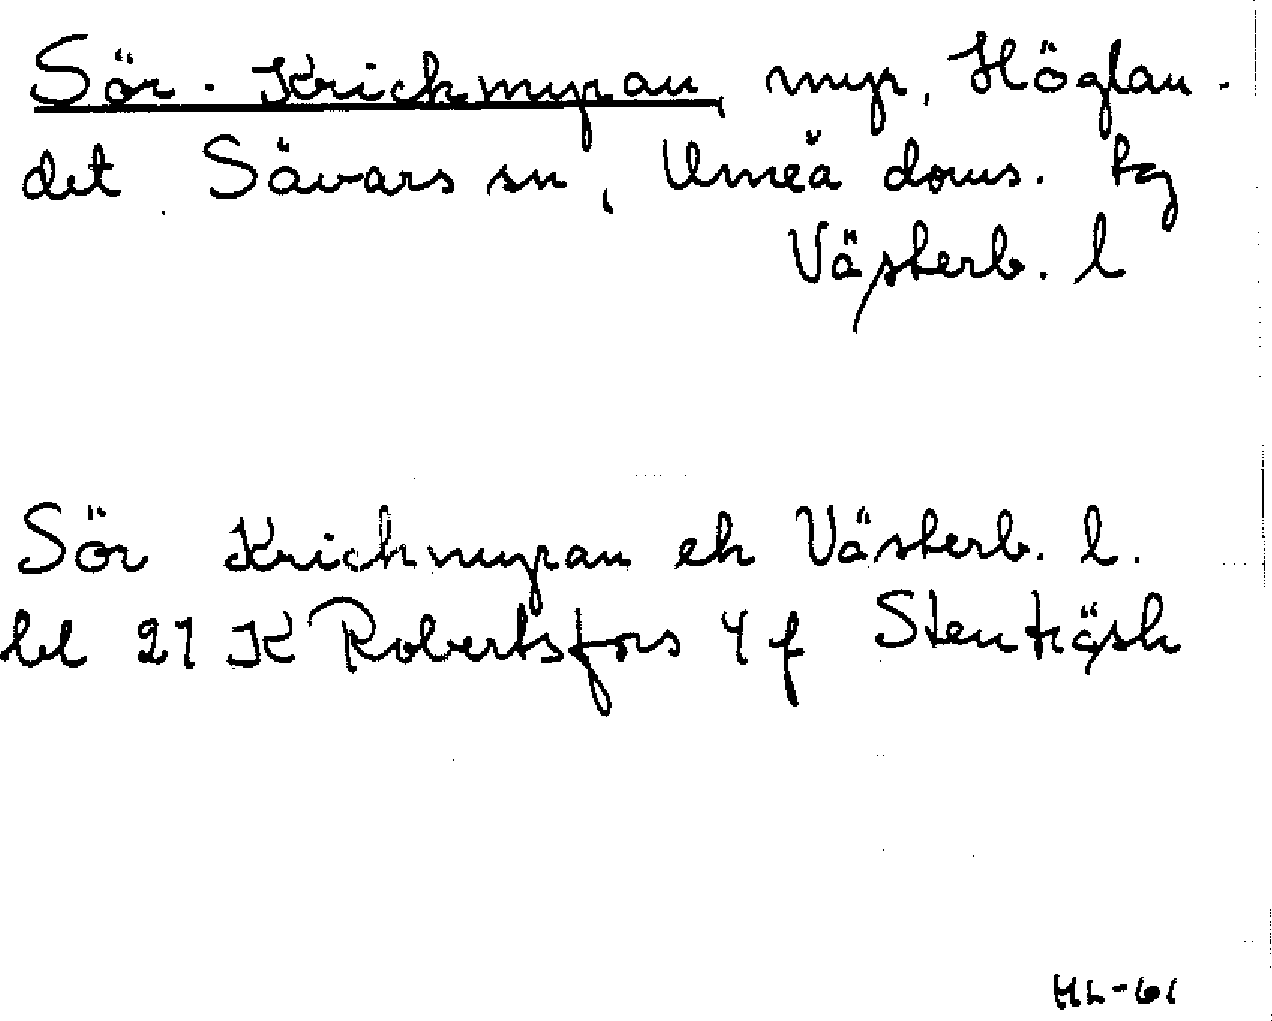 Sör-Krickmyran, myr, Höglan-
det Sävars sn, Umeå doms. tg
Västerb. l
Sör Krickmyran ek Västerb. l.
bl 21 K Robertsfors 4 f Stenträsk
HL-61